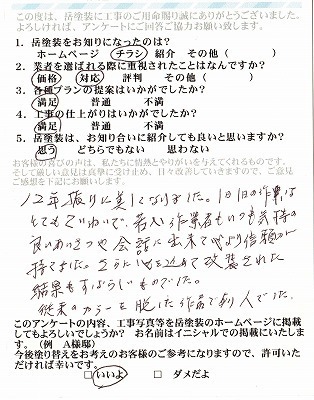 この度は、岳塗装に工事のご用命賜り誠にありがとうございました。
よろしければ、アンケートにご回答ご協力お願い致します。
1．岳塗装をお知りになったのは？
ホームページ チラシ 紹介 その他（ ）
2．業者を選ばれる際に重視されたことはなんですか？
価格 対応 評判 その他（ ）
3．各種プランの提案はいかがでしたか？
満足 普通 不満
4．工事の仕上がりはいかがでしたか？
満足 普通 不満
5．岳塗装は、お知り合いに紹介しても良いと思いますか？
思う どちらでもない 思わない
お客様の喜びの声は、私たちに情熱とやりがいを与えてくれるものです。
そして厳しい意見は真摯に受け止め、日々改善していきますので、ご意見
ご感想を下記にお願いします。
12年振りに美しくなりました。1日1日の作業は
とてもていねいで、若い作業者もいつも気持の
良いあいさつや会話に出来て心より信頼が
持てました。さらに心を込めて改装された
結果もすばらしいものでした。
従来のカラーを脱した作品で
このアンケートの内容、工事写真等を岳塗装のホームページに掲載
してもよろしいでしょうか？ お名前はイニシャルでの掲載にいたしま
す。（例 A様邸）
今後塗り替えをお考えのお客様のご参考になりますので、許可いた
だければ幸いです。
□ いいよ □ ダメだよ